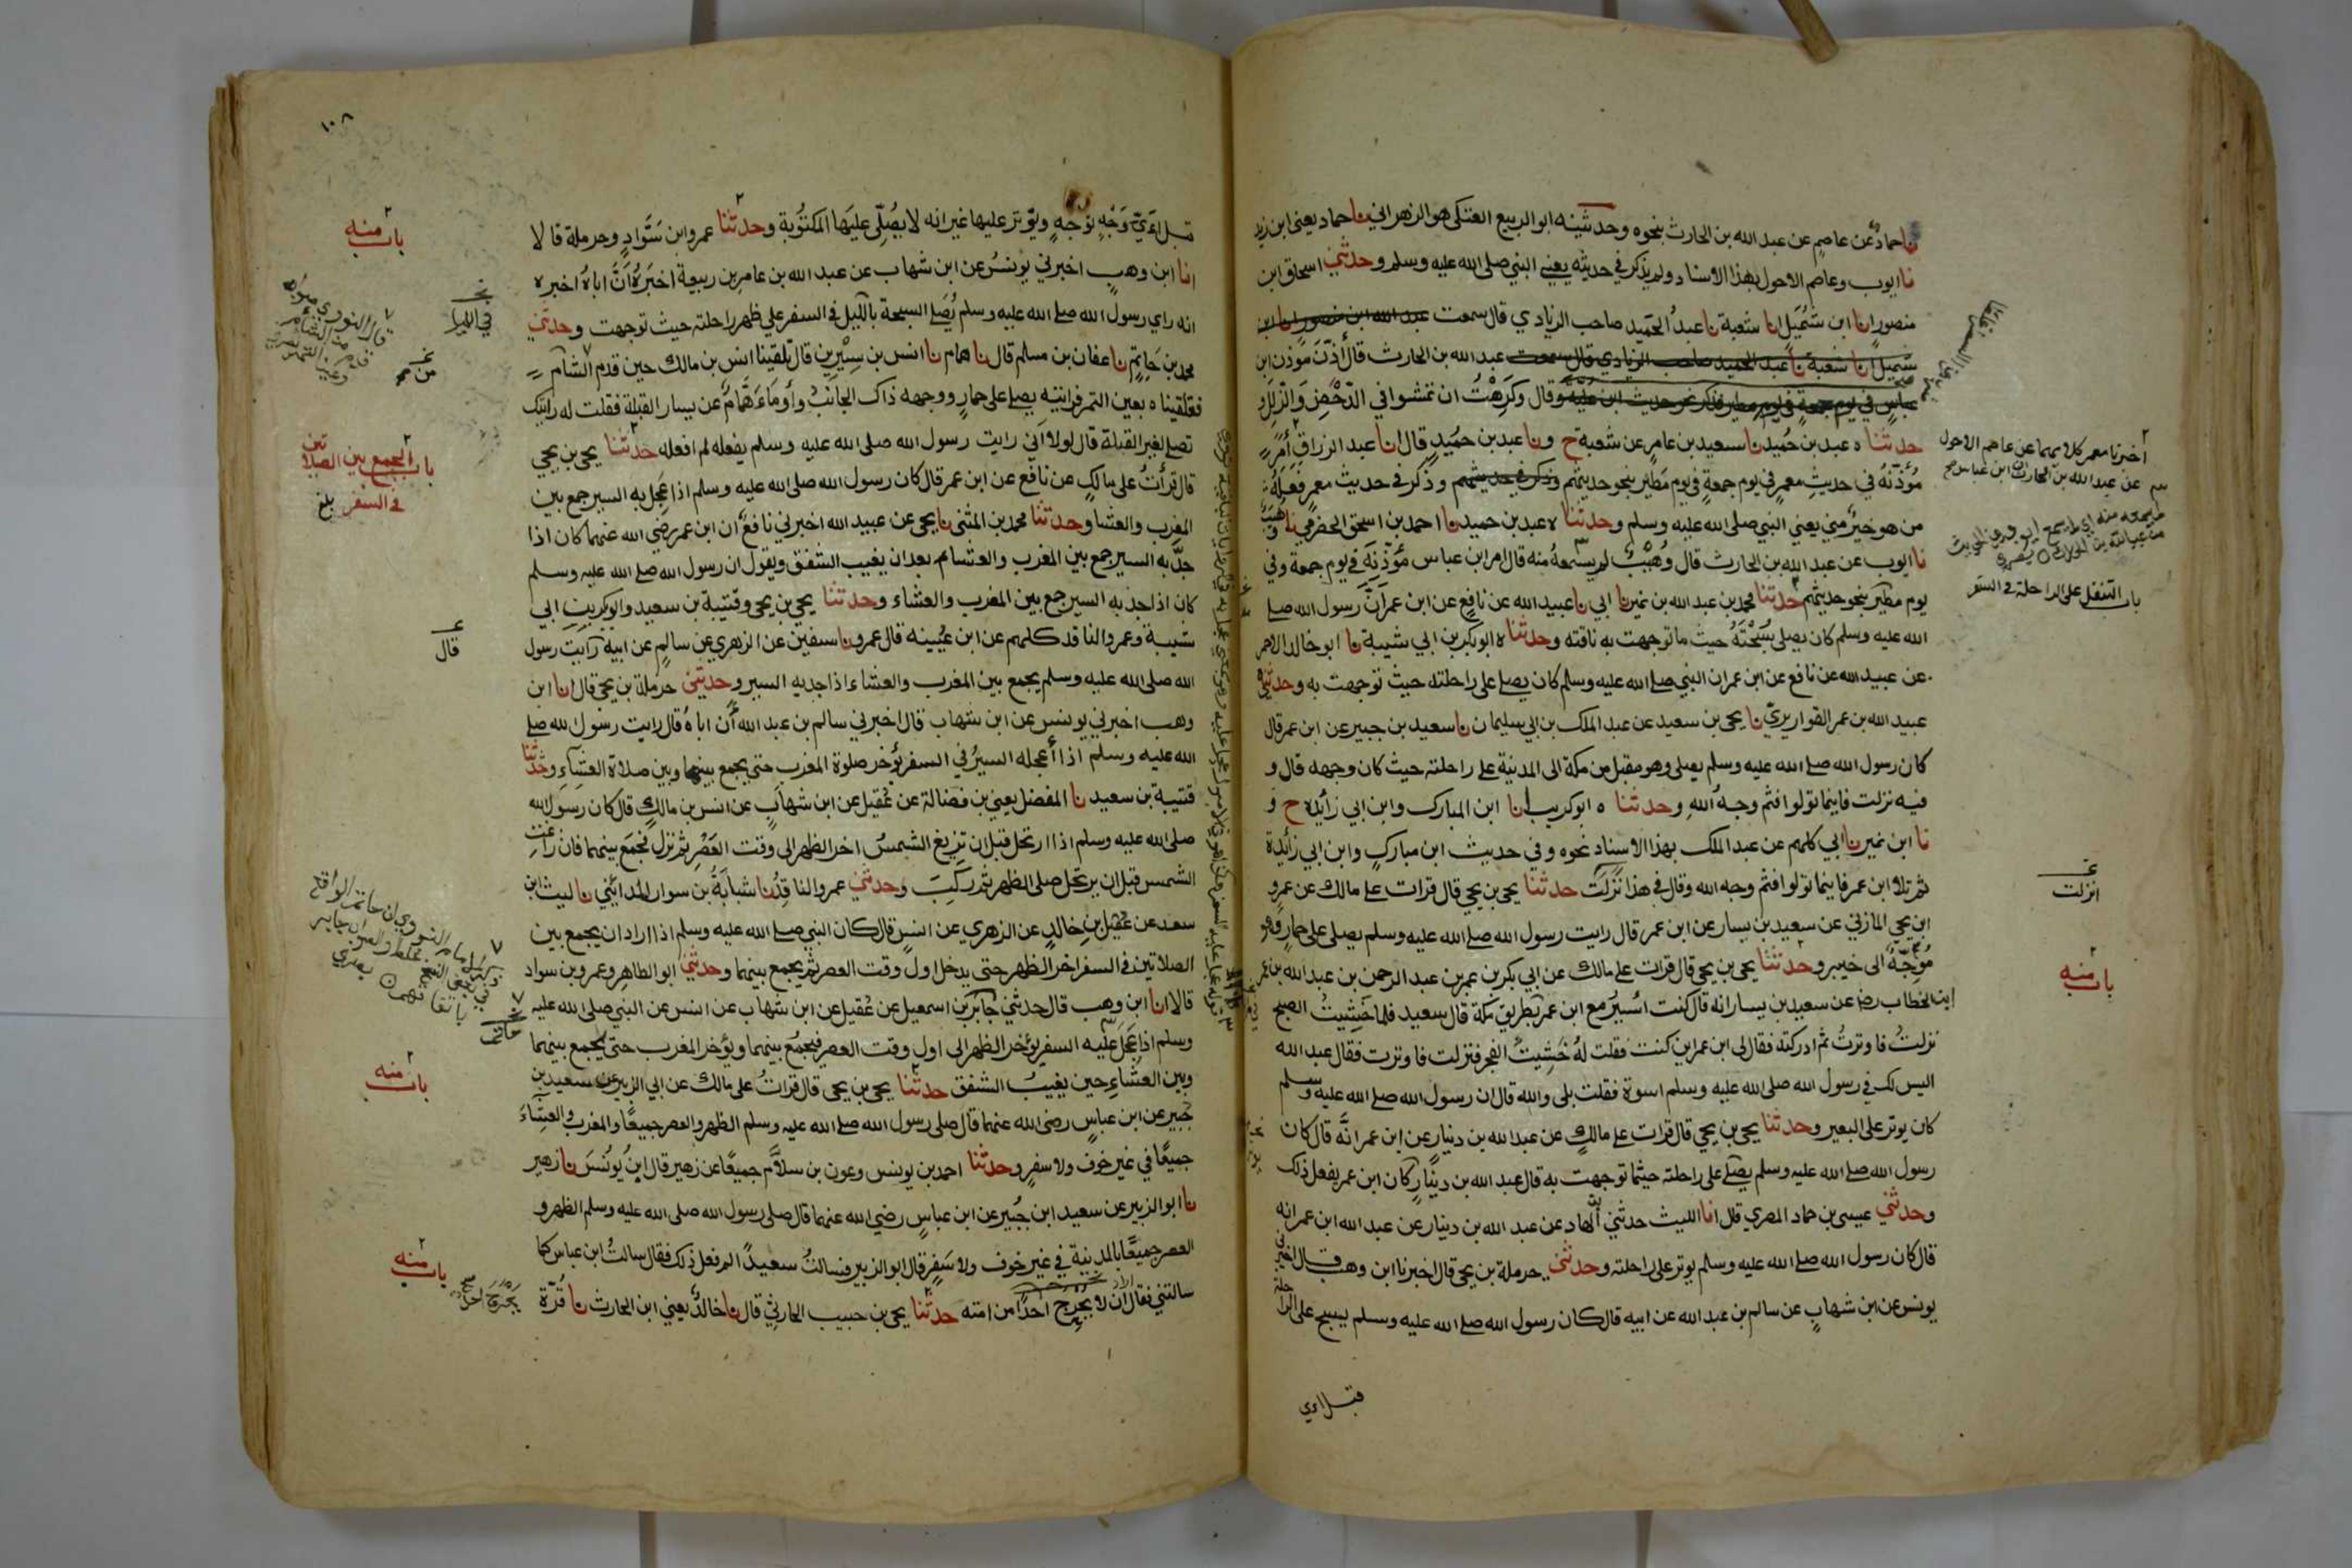 نا حماد عن عاصم عن عبد الله بن الحارث بنحوه وحدثنيه ابو الربيع العتكي هو الزهراني نا حماد يعني ابن زيد
نا ايوب وعاصم الاحول بهذا الاسناد ولم يذكر في حديثه يعني النبي صلى الله عليه وسلم وحدثني اسحاق ابن
منصور انا ابن شميل انا شعبة نا عبد الحميد صاحب الزيادي قال سمعت عبد الله ابن منصور انا ابن
شميل انا شعبة نا عبد الحميد صاحب الزيادي قال سمعت عبد الله بن الحارث قال أذن مؤذن ابن
عباس في يوم جمعة في يوم مطير فذكر نحو حديث ابن علية وقال وكرهت ان تمشوا في الدحض والزلل و
حدثنا ه عبد بن حميد نا سعيد بن عامر عن شعبة ح ونا عبد بن حميد قال انا عبد الرزاق أمر
مؤذنه في حديث معمر في يوم جمعة في يوم مطير بنحو حديثهم وذكر في حديثهم وذكر في حديث معمر فعله
من هو خير مني يعني النبي صلى الله عليه وسلم وحدثنا ه عبد بن حميد نا احمد بن اسحق الحضرمي نا وهيب
نا ايوب عن عبد الله بن الحارث قال وهيب لم يسمعه منه قال امر ابن عباس مؤذنه في يوم جمعة وفي
يوم مطير بنحو حديثهم حدثنا محمد بن عبد الله بن نمير نا ابي نا عبيد الله عن نافع عن ابن عمر أن رسول الله صلى
الله عليه وسلم كان يصلي سبحته حيث ما توجهت به ناقته وحدثنا ه ابو بكر بن ابي شيبة نا ابو خالد الاحمر
عن عبيد الله عن نافع عن ابن عمر ان النبي صلى الله عليه وسلم كان يصلي على راحلته حيث توجهت به وحدثني
عبيد الله بن عمر القواريري نا يحيى بن سعيد عن عبد الملك بن ابي سليمان نا سعيد بن جبير عن ابن عمر قال
كان رسول الله صلى الله عليه وسلم يصلي وهو مقبل من مكة الى المدينة على راحلته حيث كان وجهه قال و
فيه نزلت فاينما تولوا فثم وجه الله وحدثنا ه ابو كريب انا ابن المبارك وابن ابي زائدة ح و
نا ابن نمير نا ابي كلهم عن عبد الملك بهذا الاسناد نحوه وفي حديث ابن مبارك وابن ابي زائدة
ثم تلا ابن عمر فاينما تولوا فثم وجه الله وقال في هذا نزلت حدثنا يحيى بن يحيى قال قرات على مالك عن عمرو
ابن يحيى المازني عن سعيد بن يسار عن ابن عمر قال رايت رسول الله صلى الله عليه وسلم يصلي على حمار وهو
موجه الى خيبر وحدثنا يحيى بن يحيى قال قرات على مالك عن ابي بكر بن عمر بن عبد الرحمن بن عبد الله بن عمر
ابن الخطاب رضي عن سعيد بن يسار انه قال كنت اسير مع ابن عمر بطريق مكة قال سعيد فلما خشيت الصبح
نزلت فاوترت ثم ادركته فقال لي ابن عمر اين كنت فقلت له خشيت الفجر فنزلت فاوترت فقال عبد الله
اليس لك في رسول الله صلى الله عليه وسلم اسوة فقلت بلى والله قال ان رسول الله صلى الله عليه وسلم
كان يوتر على البعير وحدثنا يحيى بن يحيى قال قرات على مالك عن عبد الله بن دينار عن ابن عمر انه قال كان
رسول الله صلى الله عليه وسلم يصلي على راحلته حيثما توجهت به قال عبد الله بن دينار كان ابن عمر يفعل ذلك
وحدثني عيسى بن حماد المصري قال انا الليث حدثني الهاد عن عبد الله بن دينار عن عبد الله ابن عمر انه
قال كان رسول الله صلى الله عليه وسلم يوتر على راحلته وحدثني حرملة بن يحيى قال اخبرنا ابن وهب قال اخبرني
يونس عن ابن شهاب عن سالم بن عبد الله عن ابيه قال كان رسول الله صلى الله عليه وسلم يسبح على الراحلة
قبل اءي
اخبرنا معمر كلاهما عن عاصم الاحول
عن عبد الله بن الحارث ان ابن عباس
باب التنفل على الراحلة في السفر
انزلت
باب منه
١٠٨
قبل أي وجه توجه ويوتر عليها غير انه لا يصلي عليها المكتوبة وحدثنا عمرو ابن سواد وحرملة قالا
انا ابن وهب اخبرني يونس عن ابن شهاب عن عبد الله بن عامر بن ربيعة اخبره أن اباه اخبره
انه راي رسول الله صلى الله عليه وسلم يصلي السبحة بالليل في السفر على ظهر راحلته حيث توجهت وحدثني
محمد بن حاتم نا عفان بن مسلم قال نا همام نا انس بن سيرين قال تلقينا انس بن مالك حين قدم الشام
فتلقيناه بعين التمر فرايته يصلي على حمار ووجهه ذاك الجانب وأومأ همام عن يسار القبلة فقلت له رايتك
تصلي لغير القبلة قال لولا اني رايت رسول الله صلى الله عليه وسلم يفعله لم افعله حدثنا يحيى بن يحيى
قال قرأت على مالك عن نافع عن ابن عمر قال كان رسول الله صلى الله عليه وسلم اذا عجل به السير جمع بين
المغرب والعشا وحدثنا محمد بن المثنى نا يحيى عن عبيد الله اخبرني نافع ان ابن عمر رضي الله عنهما كان اذا
جد به السير جمع بين المغرب والعشاء بعد ان يغيب الشفق ويقول ان رسول الله صلى الله عليه وسلم
كان اذا جد به السير جمع بين المغرب والعشاء وحدثنا يحيى بن يحيى وقتيبة بن سعيد وابو بكر بن ابي
شيبة وعمرو الناقد كلهم عن ابن عيينه قال عمرو نا سفين عن الزهري عن سالم عن ابيه رايت رسول
الله صلى الله عليه وسلم يجمع بين المغرب والعشاء اذا جد به السير وحدثني حرملة بن يحيى قال انا ابن
وهب اخبرني يونس عن ابن شهاب قال اخبرني سالم بن عبد الله أن اباه قال رايت رسول الله صلى
الله عليه وسلم اذا أعجله السير في السفر يؤخر صلوة المغرب حتى يجمع بينهما وبين صلاة العشاء وحدثنا
قتيبة بن سعيد نا المفضل يعني بن فضالة عن عقيل عن ابن شهاب عن انس بن مالك قال كان رسول الله
صلى الله عليه وسلم اذا ارتحل قبل ان تزيغ الشمس اخر الظهر الى وقت العصر ثم نزل فجمع بينهما فان زاغت
الشمس قبل ان يرتحل صلى الظهر ثم ركب وحدثني عمرو الناقد نا شبابة بن سوار المدائني نا ليث ابن
سعد عن عقيل بن خالد عن الزهري عن انس قال كان النبي صلى الله عليه وسلم اذا اراد ان يجمع بين
الصلاتين في السفر اخر الظهر حتى يدخل اول وقت العصر ثم يجمع بينهما وحدثني ابو الطاهر وعمرو بن سواد
قالا انا ابن وهب قال حدثني جابر بن اسمعيل عن عقيل عن ابن شهاب عن انس عن النبي صلى الله عليه
وسلم اذا عجل عليه السفر يؤخر الظهر الى اول وقت العصر فيجمع بينهما ويؤخر المغرب حتى يجمع بينهما
وبين العشاء حين يغيب الشفق حدثنا يحيى بن يحيى قال قرات على مالك عن ابي الزبير عن سعيد بن
جبير عن ابن عباس رضي الله عنهما قال صلى رسول الله صلى الله عليه وسلم الظهر والعصر جميعا والمغرب والعشاء
جميعا في غير خوف ولا سفر وحدثنا احمد بن يونس وعون بن سلام جميعا عن زهير قال ابن يونس نا زهير
نا ابو الزبير عن سعيد ابن جبير عن ابن عباس رضي الله عنهما قال صلى رسول الله صلى الله عليه وسلم الظهر و
العصر جميعا بالمدينة في غير خوف ولا سفر قال ابو الزبير فسالت سعيدا لم فعل ذلك فقال سالت ابن عباس كما
سالتني فقال ان لا يحرج احدا من امته حدثنا يحيى بن حبيب الحارثي قال نا خالد يعني ابن الحارث نا قرة
باب منه
باب الجمع بين الصلاتين
في السفر بلغ
قال
باب منه
باب منه